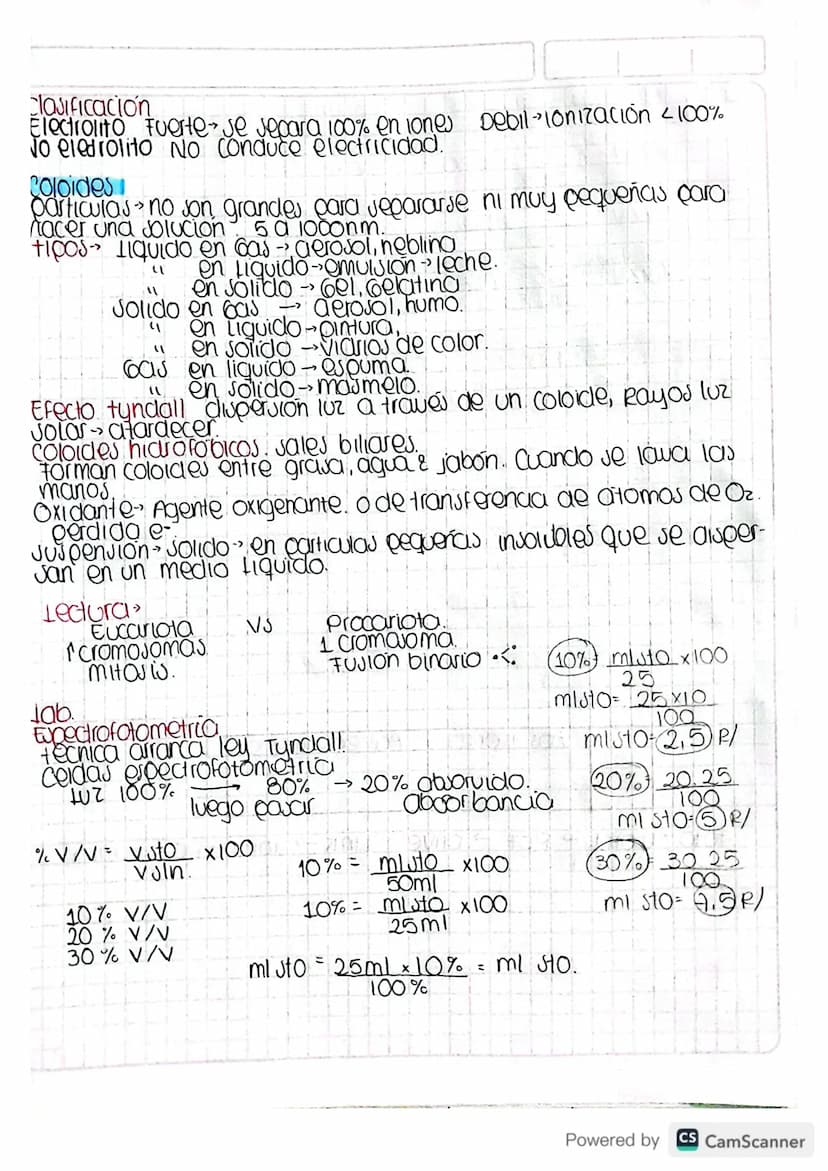 Clasificación
Electrolito Fuerte → se separa 100% en iones Debil → ionización < 100%
No eledrolito NO conduce electricidad.
Coloides
particulas → no son grandes para separarse ni muy pequeñas para
hacer una solución 5 a 1000nm.
tipos → Liquido en Gas → aerosol, neblina
" en Liquido → emulsión → leche.
" en solido → Gel, Gelatina
Solido en Gas → aerosol, humo.
" en Liquido → pintura,
" en solido → vidrios de color.
Gas en liquido → espuma.
" en solido → masmelo.
Efecto tyndall dispersión luz a través de un coloide, Rayos luz
solar → atardecer
Coloides hidrofóbicos: sales biliares.
forman coloides entre grasa, agua & jabón. Cuando se lava las
manos
Oxidante → Agente oxigenante. o de transferencia de atomos de O2.
perdida e-
suspensión → solido → en particulas pequeñas insolubles que se disper-
san en un medio Liquido.
Lectura →
Eucariota vs Procariota.
↑cromosomas 1 cromosoma
mitosis. Fusión binario
10% = ml sto x100
25
ml sto = 25 x 10
100
ml sto = 2,5 R/
Lab.
Espectrofotometria
técnica ley Tyndall.
Celdas espectrofotometría
Luz 100% → 80% → 20% absorvido.
luego pasar absorbancia
20% = 20.25
100
ml sto = 5 R/
30% = 30 25
100
ml sto = 7,5 R/
% V/V = V sto x100
V sln.
10% V/V
20 % V/V
30 % V/V
10% = ml sto x100
50ml
10% = ml sto x100
25ml
ml sto = 25ml x 10% = ml sto.
100%
Powered by CS CamScanner